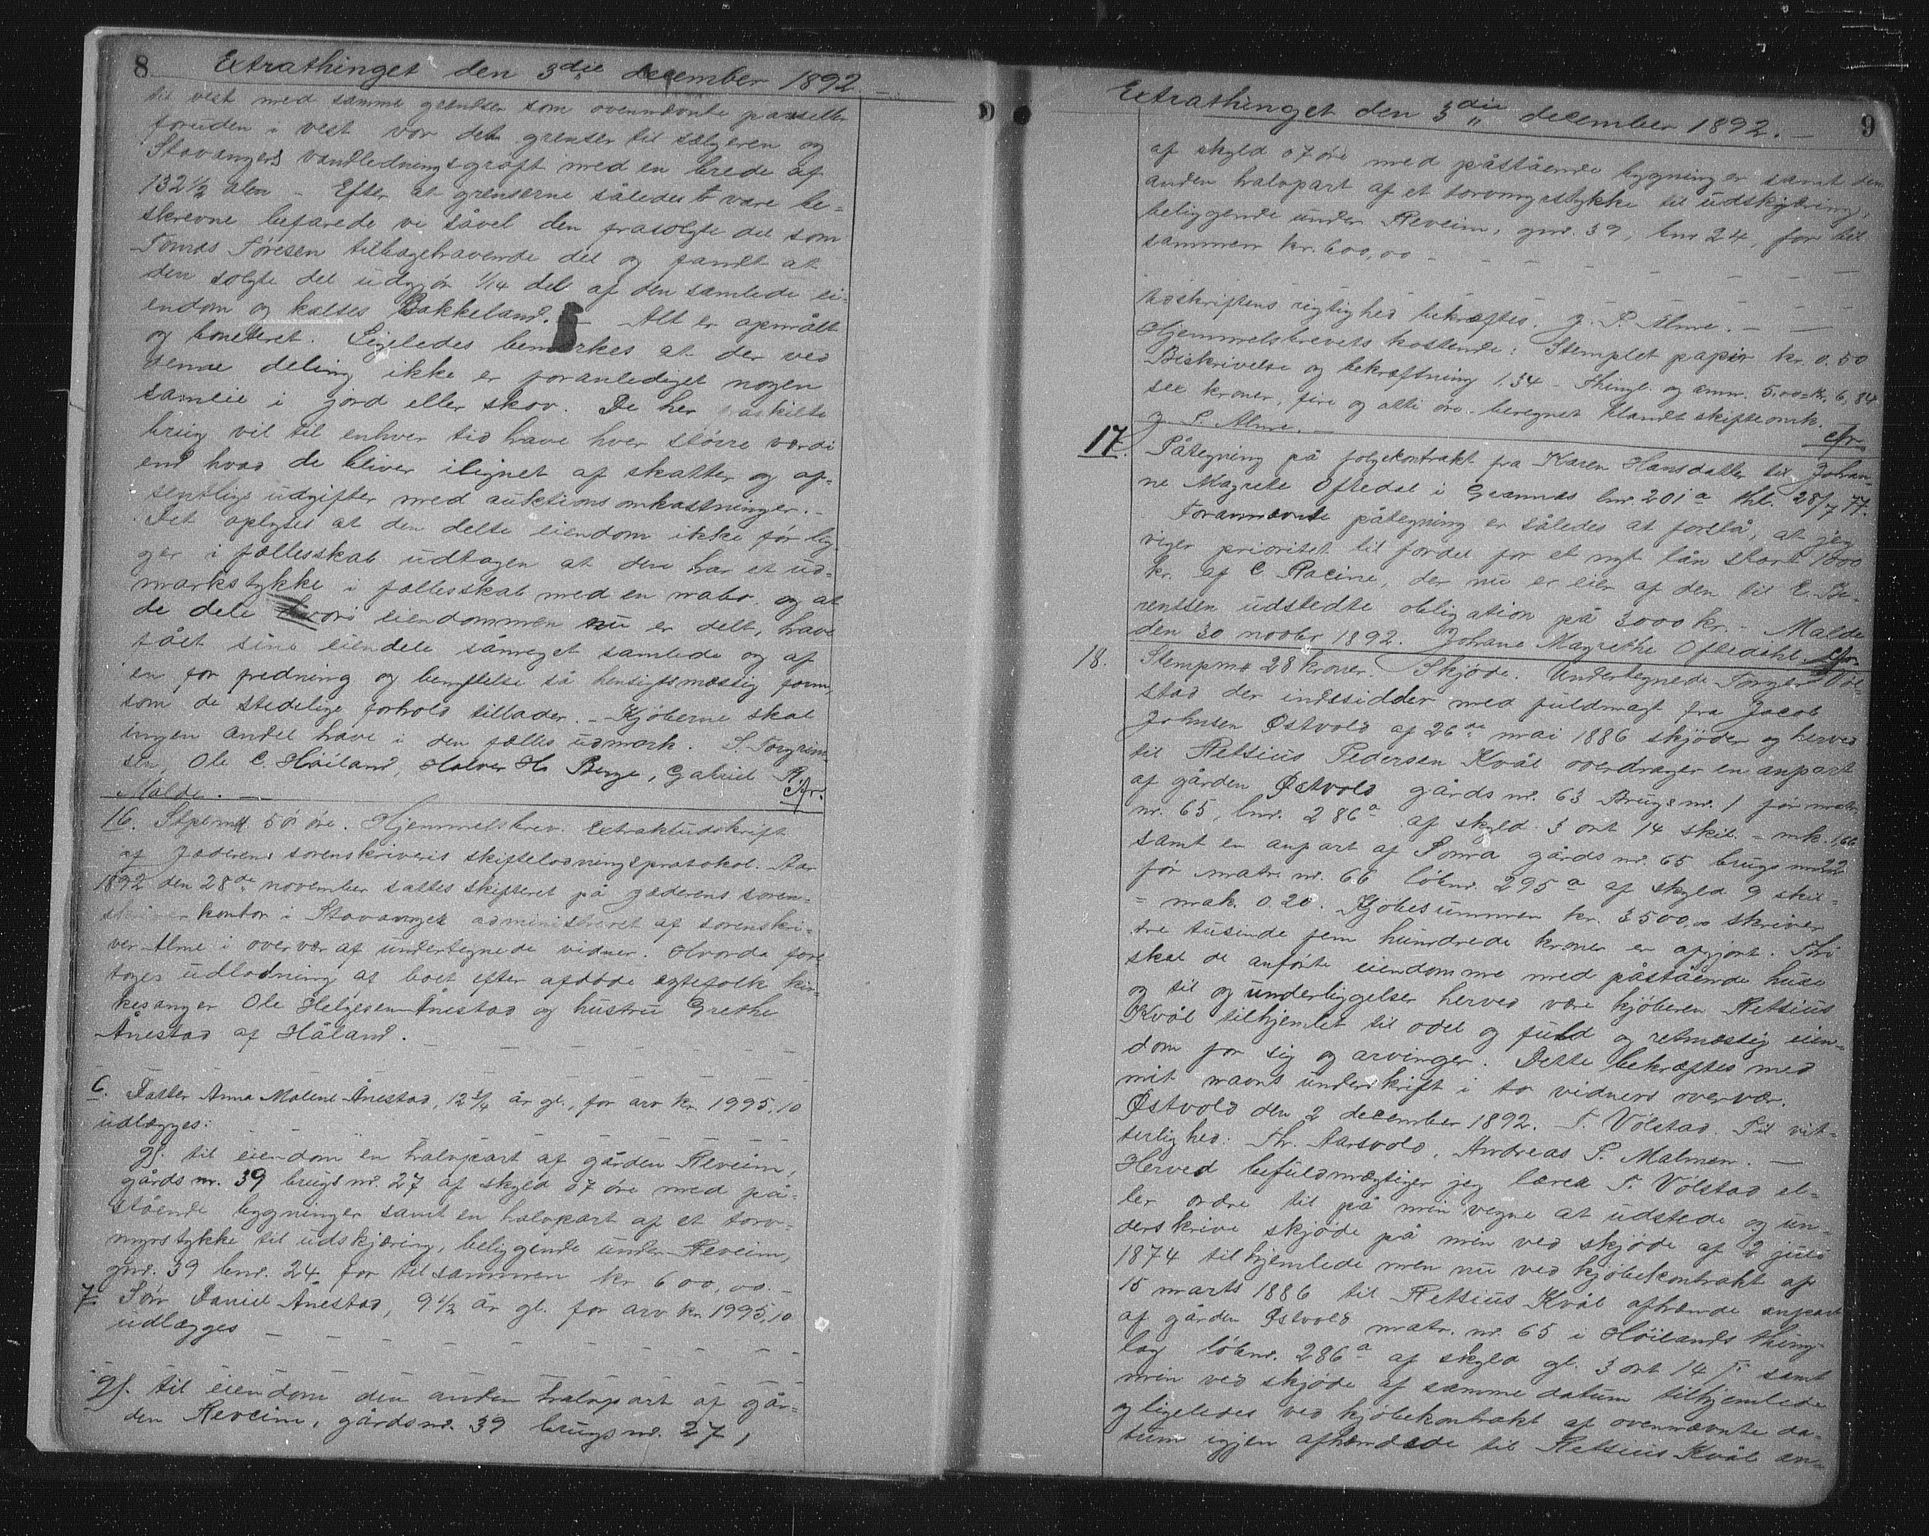 8
Extrathinget den 3die december 1892. –
til vest med samme grændser som ovennævnte parseller
foruden i vest var det grenser til sælgeren og
Stavangers vandledningsgrøft med en brede af
132 1/2 alen – Efter at grenserne således vare be-
skrevne befarede vi såvel den frasolgte del som
Tomas Tøresen tilbagehavende del og fandt at
den solgte del udgjør 1/14 del af den samlede ei-
endom og kaldes Bakkeland. – Alt er opmålt
og boniteret. Ligeledes bemerkes at der ved
denne deling ikke er foranlediget nogen
sameie i jord eller skov. De her fraskilte
brug vil til enhver tid have hver større værdi
end hvad de bliver ilignet af skatter og of-
fentlige udgifter med auktionsomkostninger. –
Det oplystes at den delte eiendom ikke før lig-
ger i fællesskab udtagen at den har et ud-
markstykke i fællesskab med en nabo og at
de dele hvori eiendommen nu er delt, have
fået sine eiendele sånæget samlede og af
en for fredning og benyttelse så hensigtsmæssig form,
som de stedelige forhold tillader. – Kjøberne skal
ingen andel have i den fælles udmark. S. Torgrim-
sen, Ole C. Høiland, Halver H. Berge, Gabriel R.
Malde. – cfr.
16. Stpem 50 øre. Hjemmelsbrev. Extraktudskrift
af Jæderens sorenskriveris skifteslodningsprotokol. Aar
1892 den 28de november sattes skifteret på Jæderens soren-
skriverkontor i Stavanger administreret af sorenskri-
ver Alme i overvær af undertegnede vidner. Hvorda fore-
toges udlodning af boet efter afdøde egtefolk kir-
kesanger Ole Helgesen Ånestad og hustru Grethe
Ånestad af Håland. –
6. Datter Anna Malene Ånestad, 12 3/4 år gl., for arv kr. 1995,10
udlægges:
g). til eiendom en halvpart af gården Reveim,
gårds nr. 39 brugs nr. 27 af skyld 07 øre med på-
stående bygninger samt en halvpart af et torv-
myrstykke til udskjæring, beliggende under Reveim,
gnr. 39 bnr. 24 for tilsammen kr 600,00. –
7. Søn Daniel Ånestad, 9 1/2 år gl. for arv kr. 1995,10
udlægges –
g). til eiendom den anden halvpart af går-
den Reveim, gårds nr. 39 brugs nr. 27,
9
Extrathinget den 3die december 1892. –
af skyld 07 øre med påstående bygninger samt den
anden halvpart af et torvmyrstykke til udskjæring,
beliggende under Reveim, gnr. 39, bnr 24, for til
sammen kr. 600,00 –
Udskriftens rigtighed bekræftes. J. P. Alme. –
Hjemmelsbrevets kostende: Stemplet papir kr. 0.50
Beskrivelse og bekræftning 1.34 – Thingl. og anm. 5.00 = Kr. 6,84
sex kroner, fire og otti øre. beregnet blandt skifteomk.
J. P. Alme. – cfr.
17. Påtegning på følgekontrakt fra Karen Hansdatter til Johan-
ne Magrete Oftedal i Grannes lnr. 201a thl. 28/7 77.
Forannævnte påtegning er således at forstå, at jeg
viger prioritet til fordel for et nyt lån stort 1000
kr. af C. Racine, der nu er eier af den til E. Be-
rentsen udstedte obligation på 3000 kr. – Malde
den 30 novbr 1892. Johane Magrethe Oftedahl. cfr.
18. Stempm 28 kroner. Skjøde. Undertegnede Torger Vol-
stad der indesidder med fuldmagt fra Jacob
Johnsen Østvold af 26de mai 1886 skjøder og herved
til Retsius Pedersen Kvål overdrager en anpart
af gården Østvold gårds nr. 63 Brugs nr. 1 før matr.
nr. 65, lnr. 286a af skyld 3 ort 14 skil. – mk. 1,66
samt en anpart af Somra gårds nr. 65 brugs nr 22
før matr. nr. 66 løbnr. 295a af skyld 9 skil-
= mark. 0.20. Kjøbesummen kr. 3500,00 skriver
tre tusinde fem hundrede kroner er afgjort. Thi
skal de anførte eiendomme med påstående huse
og til og underliggelser herved være kjøberen Retsius
Kvål tilhjemlet til odel og fuld og retmæssig eien-
dom for sig og arvinger. Dette bekræftes med
mit navns underskrift i to vidners overvær.
Østvold den 2 december 1892. T. Volstad. Til vit-
terlighed: Th. Aarsvold, Andreas P. Malmen. –
Herved befuldmægtiger jeg lærer T. Volstad el-
ler ordre til på min vegne at udstede og un-
derskrive skjøde på min ved skjøde af 2 juli
1874 tilhjemlede men nu ved kjøbekontrakt af
15 marts 1886 til Retsius Kvål afhænde anpart
af gården Østvold matr. nr. 65 i Høilands thing-
lag løbnr. 286a af skyld gl. 3 ort 14 ß samt
min ved skjøde af samme datum tilhjemlede
og ligeledes ved kjøbekontrakt af ovennævnte da-
tum igjen afhændede til Retsius Kvål an-